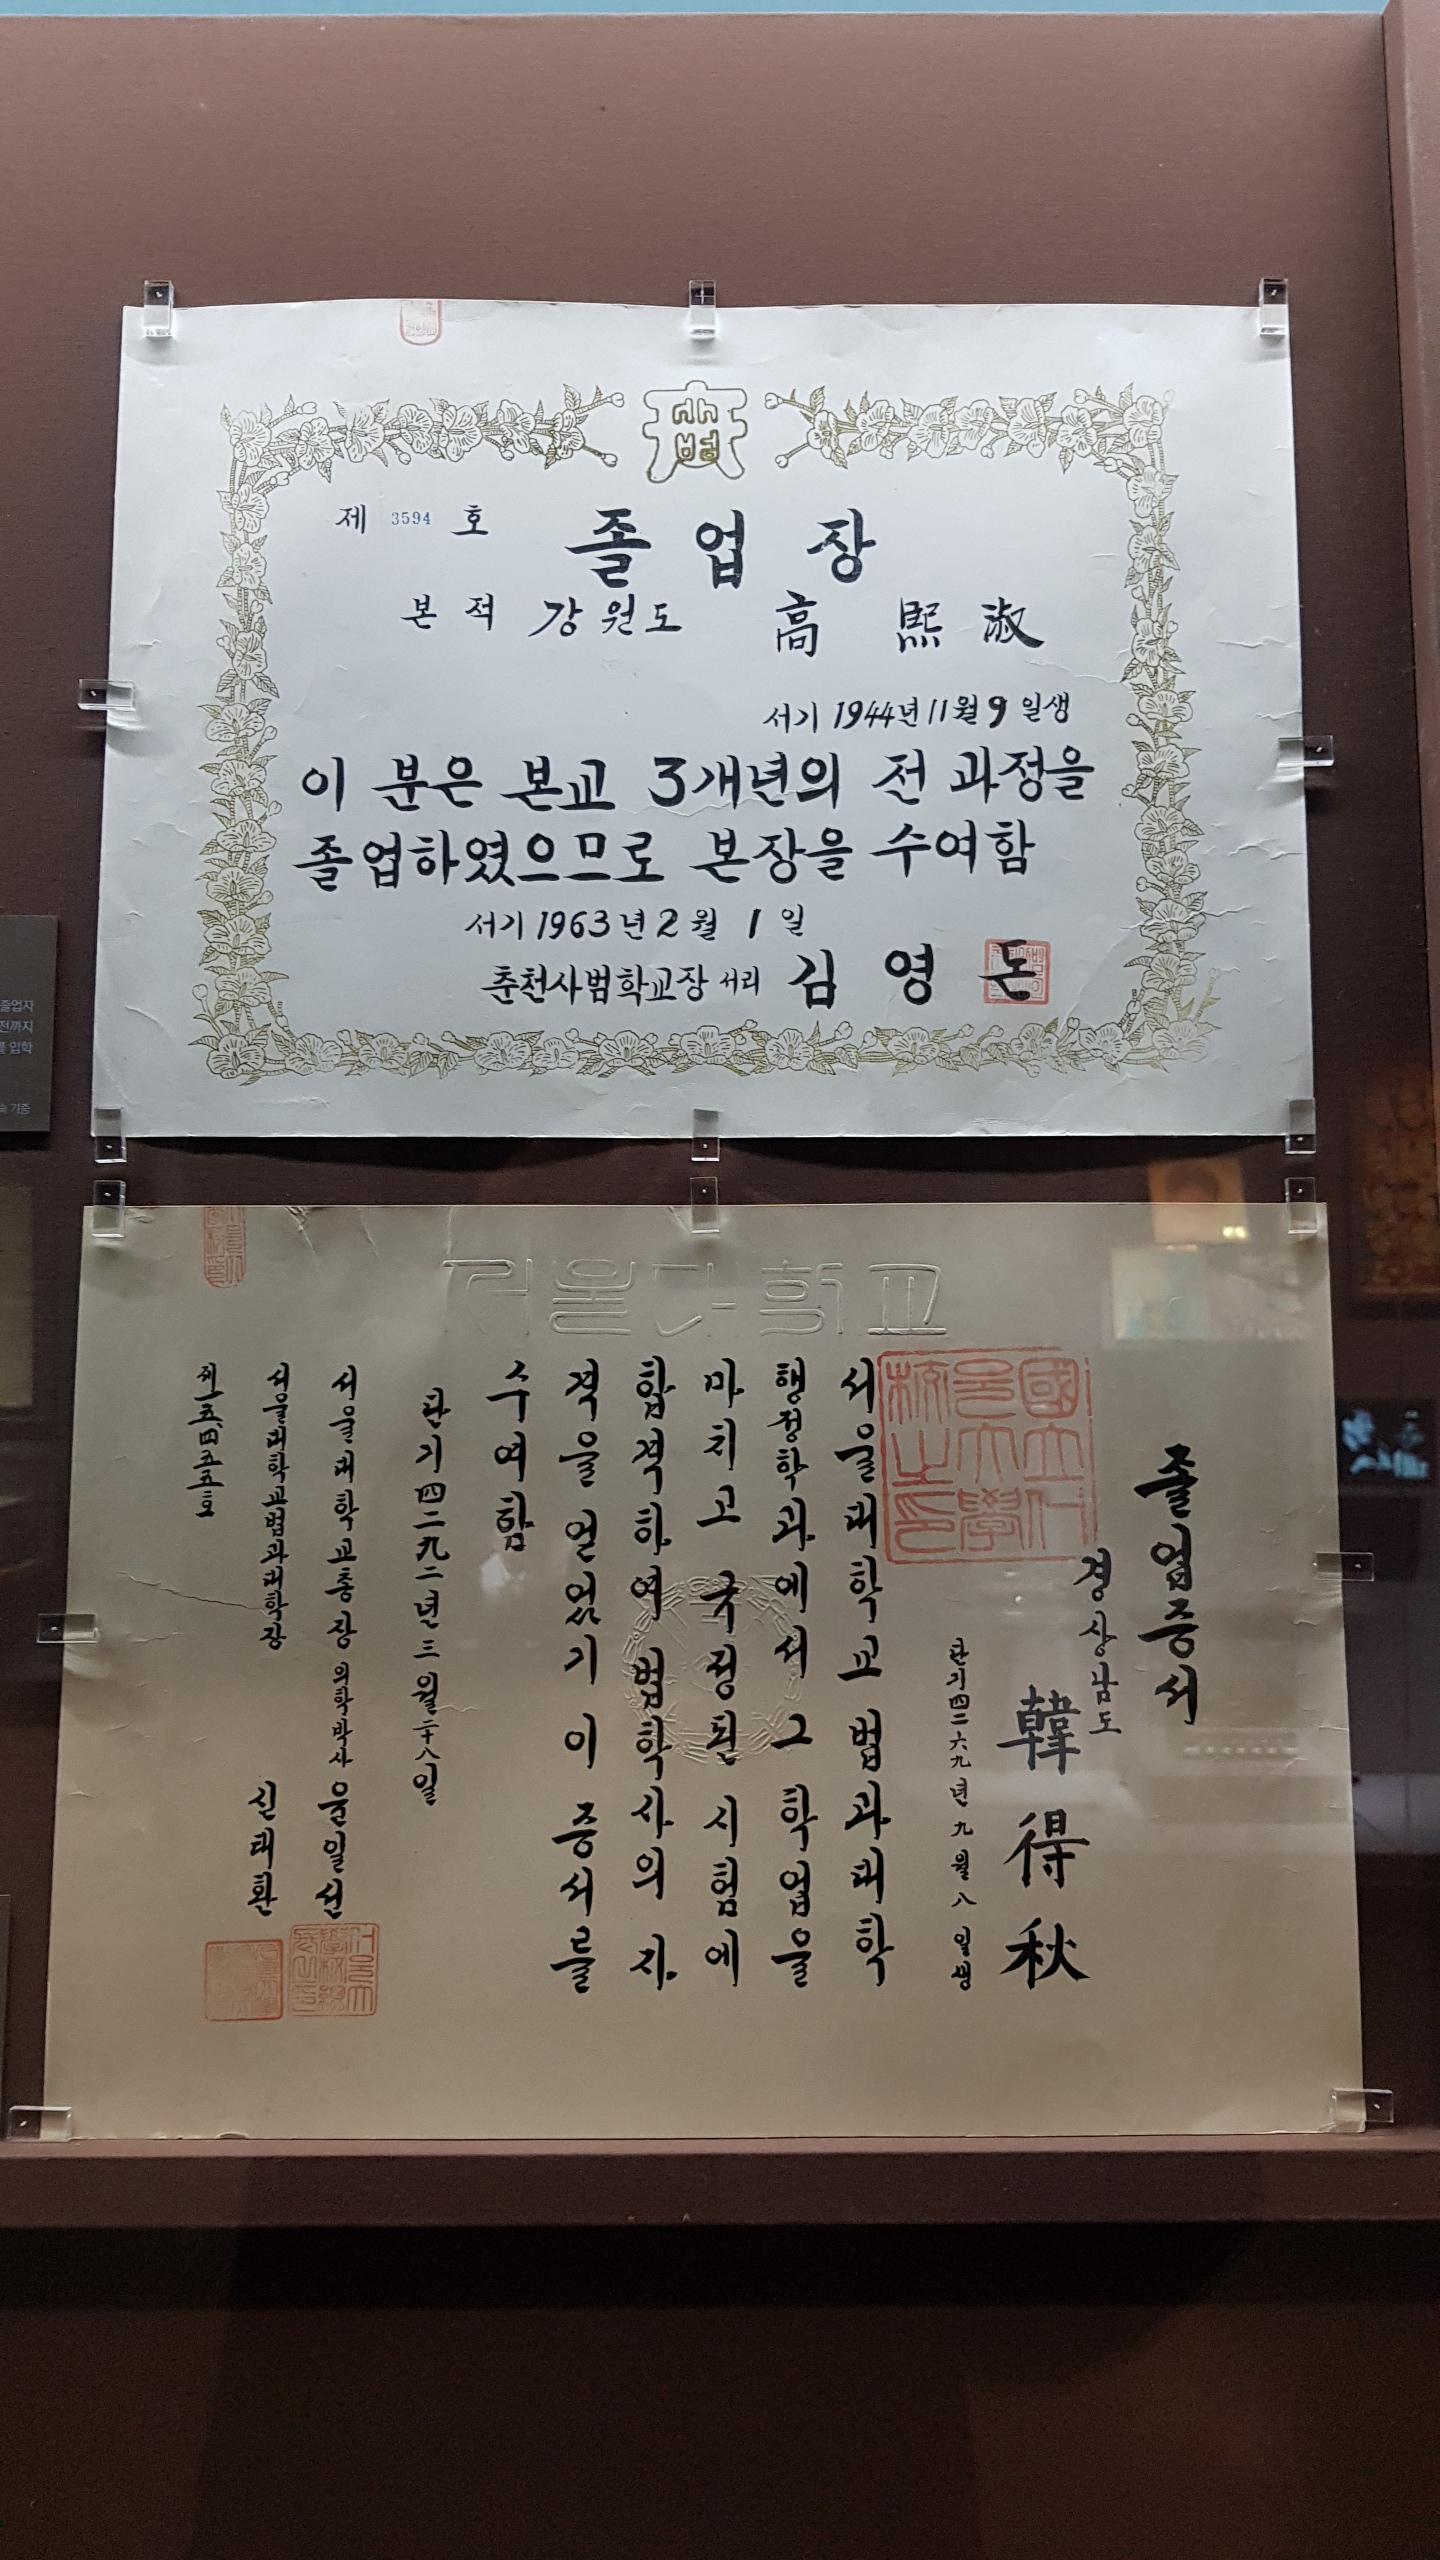 사범
제 3594 호
졸업장
본적 강원도 高熙淑
서기 1944년 11월 9일생
이 분은 본교 3개년의 전 과정을
졸업하였으므로 본장을 수여함
서기 1963년 2월 1일
춘천사범학교장 서리 김영돈
졸업자
전까지
입학
숙 기증
서울대학교
졸업증서
경상남도
韓得秋
단기四二六九년九월八일생
서울대학교 법과대학
행정학과에서 그 학업을
마치고 국정된 시험에
합격하여 법학사의 자
격을 얻었기 이 증서를
수여함
단기四二九二년三월二十八일
서울대학교총장 의학박사 윤일선
서울대학교법과대학장 신태환
제一五、四五五호